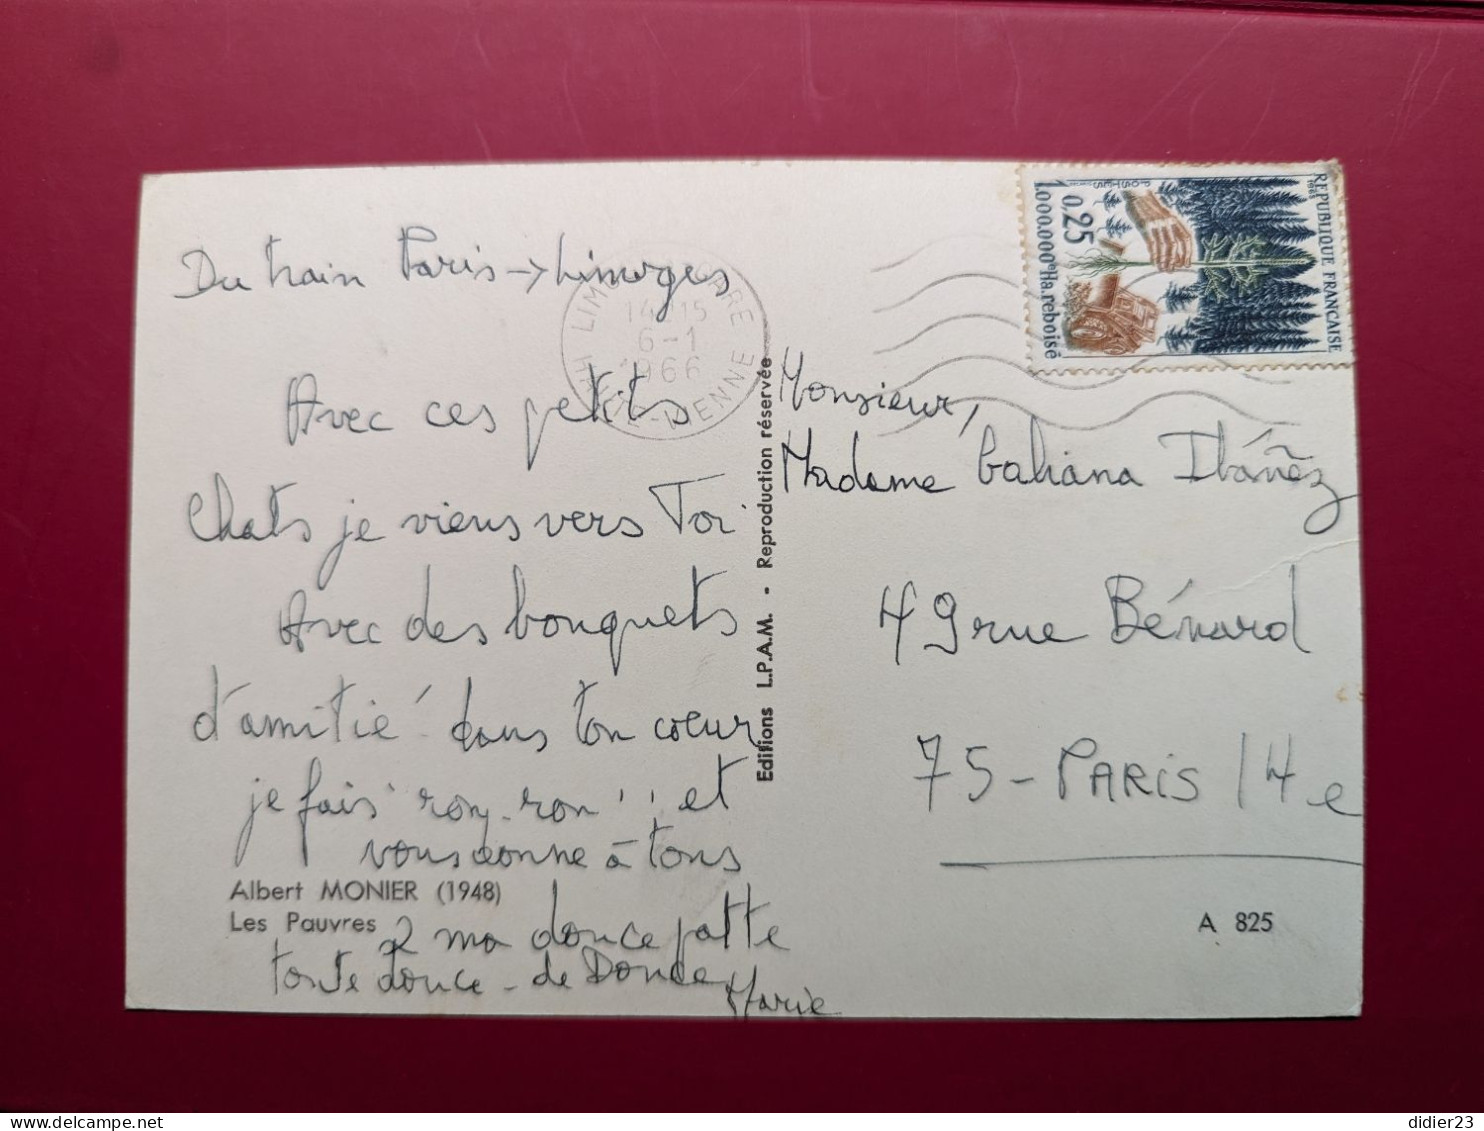 Du train Paris → Limoges
Avec ces petits
Chats je viens vers Toi
Avec des bouquets
d'amitié dans ton coeur
je fais "ron-ron" et
vous donne à tous
2 ma douce patte
toute douce - de Douce
Marie
Albert MONIER (1948)
Les Pauvres
Editions L.P.A.M. • Reproduction réservée
14 15
6-1
1966
REPUBLIQUE FRANÇAISE
1965
POSTES
0,25
1.000.000e Ha. reboisé
Monsieur,
Madame Ibáñez
49 rue Bénard
75-PARIS 14e
A 825
didier23